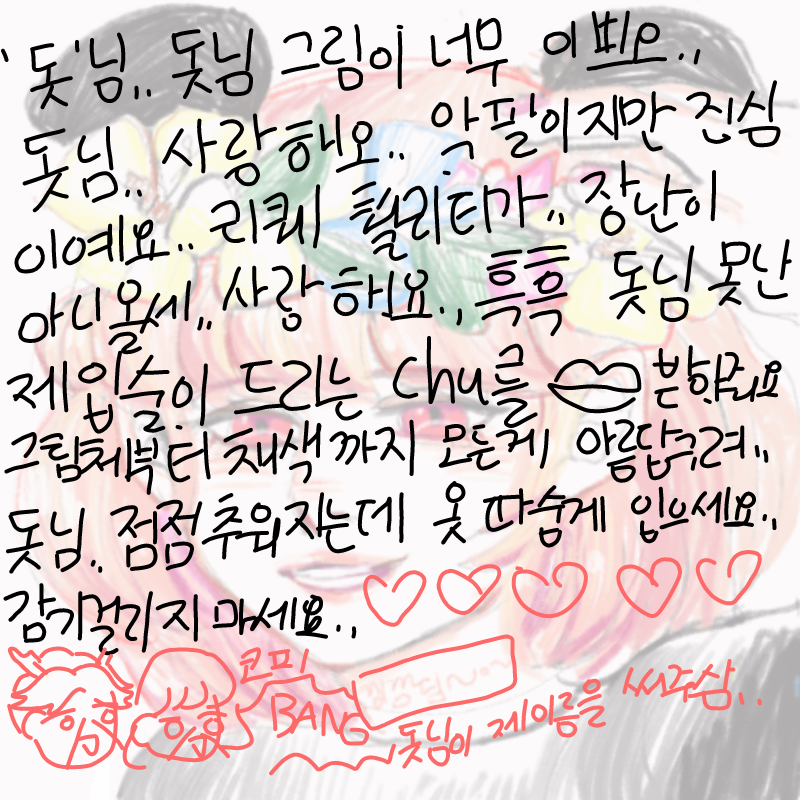 '돗'님.. 돗님 그림이 너무 이쁘요..
돗님.. 사랑해요.. 악필이지만 진심
이예요.. 리퀘 퀄리티가.. 장난이
아니올세.. 사랑해요.. 흑흑 돗님 못난
제입술이 드리는 chu를 받아줘요
그림체부터 채색까지 모든게 아름답구려..
돗님.. 점점 추워지는데 옷 따숩게 입으세요..
감기걸리지 마세요..
코피
BANG
돗님이 제이름을 써주삼..